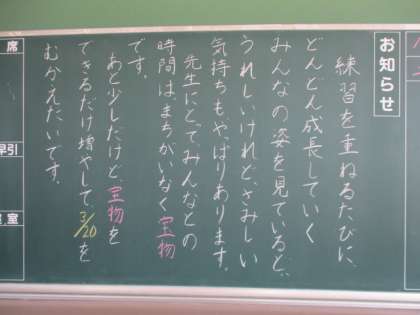 お知らせ
練習を重ねるたびに、
どんどん成長していく
みんなの姿を見ていると、
うれしいけれど、さみしい
気持ちも、やはりあります。
先生にとって、みんなとの
時間は、まちがいなく宝物
です。
あと少しだけど、宝物を
できるだけ増やして、3/20を
むかえたいです。
席
早引
室